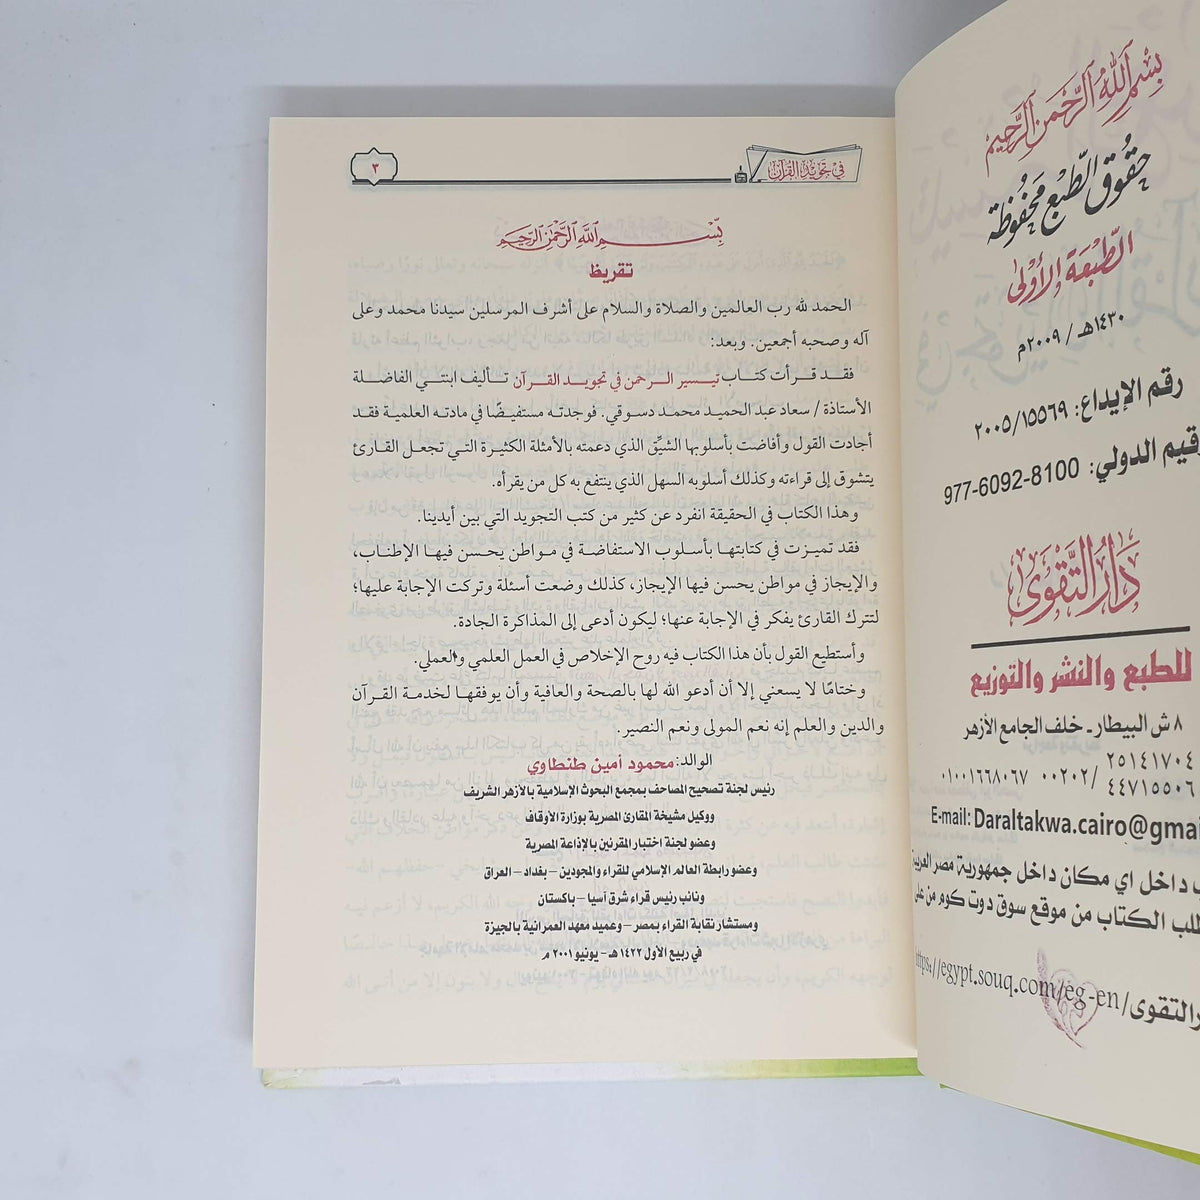 بسم الله الرحمن الرحيم
حقوق الطبع محفوظة
الطبعة الأولى
١٤٣٠هـ / ٢٠٠٩م
رقم الإيداع: ٢٠٠٥/١٥٥٦٩
رقيم الدولي: 977-6092-8100
دار التقوى
للطبع والنشر والتوزيع
٨ ش البيطار - خلف الجامع الأزهر
٢٥١٤١٧٠٤
٤٤٧١٥٥٠٦ /٠٠٢٠٢ ٠١٠٠١٦٦٨٠٦٧
E-mail: Daraltakwa.cairo@gmai
داخل اي مكان داخل جمهورية مصر العربية
طلب الكتاب من موقع سوق دوت كوم من على
https://egypt.souq.com/eg-en/رالتقوى
في تجويد القرآن
٣
بسم الله الرحمن الرحيم
تقريظ
الحمد لله رب العالمين والصلاة والسلام على أشرف المرسلين سيدنا محمد وعلى
آله وصحبه أجمعين. وبعد:
فقد قرأت كتاب تيسير الرحمن في تجويد القرآن تأليف ابنتي الفاضلة
الأستاذة / سعاد عبد الحميد محمد دسوقي. فوجدته مستفيضًا في مادته العلمية فقد
أجادت القول وأفاضت بأسلوبها الشيِّق الذي دعمته بالأمثلة الكثيرة التي تجعل القارئ
يتشوق إلى قراءته وكذلك أسلوبه السهل الذي ينتفع به كل من يقرأه.
وهذا الكتاب في الحقيقة انفرد عن كثير من كتب التجويد التي بين أيدينا.
فقد تميزت في كتابتها بأسلوب الاستفاضة في مواطن يحسن فيها الإطناب،
والإيجاز في مواطن يحسن فيها الإيجاز، كذلك وضعت أسئلة وتركت الإجابة عليها؛
لتترك القارئ يفكر في الإجابة عنها؛ ليكون أدعى إلى المذاكرة الجادة.
وأستطيع القول بأن هذا الكتاب فيه روح الإخلاص في العمل العلمي والعملي.
وختامًا لا يسعني إلا أن أدعو الله لها بالصحة والعافية وأن يوفقها لخدمة القرآن
والدين والعلم إنه نعم المولى ونعم النصير.
الوالد: محمود أمين طنطاوي
رئيس لجنة تصحيح المصاحف بمجمع البحوث الإسلامية بالأزهر الشريف
ووكيل مشيخة المقارئ المصرية بوزارة الأوقاف
وعضو لجنة اختبار المقرئين بالإذاعة المصرية
وعضو رابطة العالم الإسلامي للقراء والمجودين - بغداد - العراق
ونائب رئيس قراء شرق آسيا - باكستان
ومستشار نقابة القراء بمصر - وعميد معهد العمرانية بالجيزة
في ربيع الأول ١٤٢٢ هـ - يونيو ٢٠٠١ م